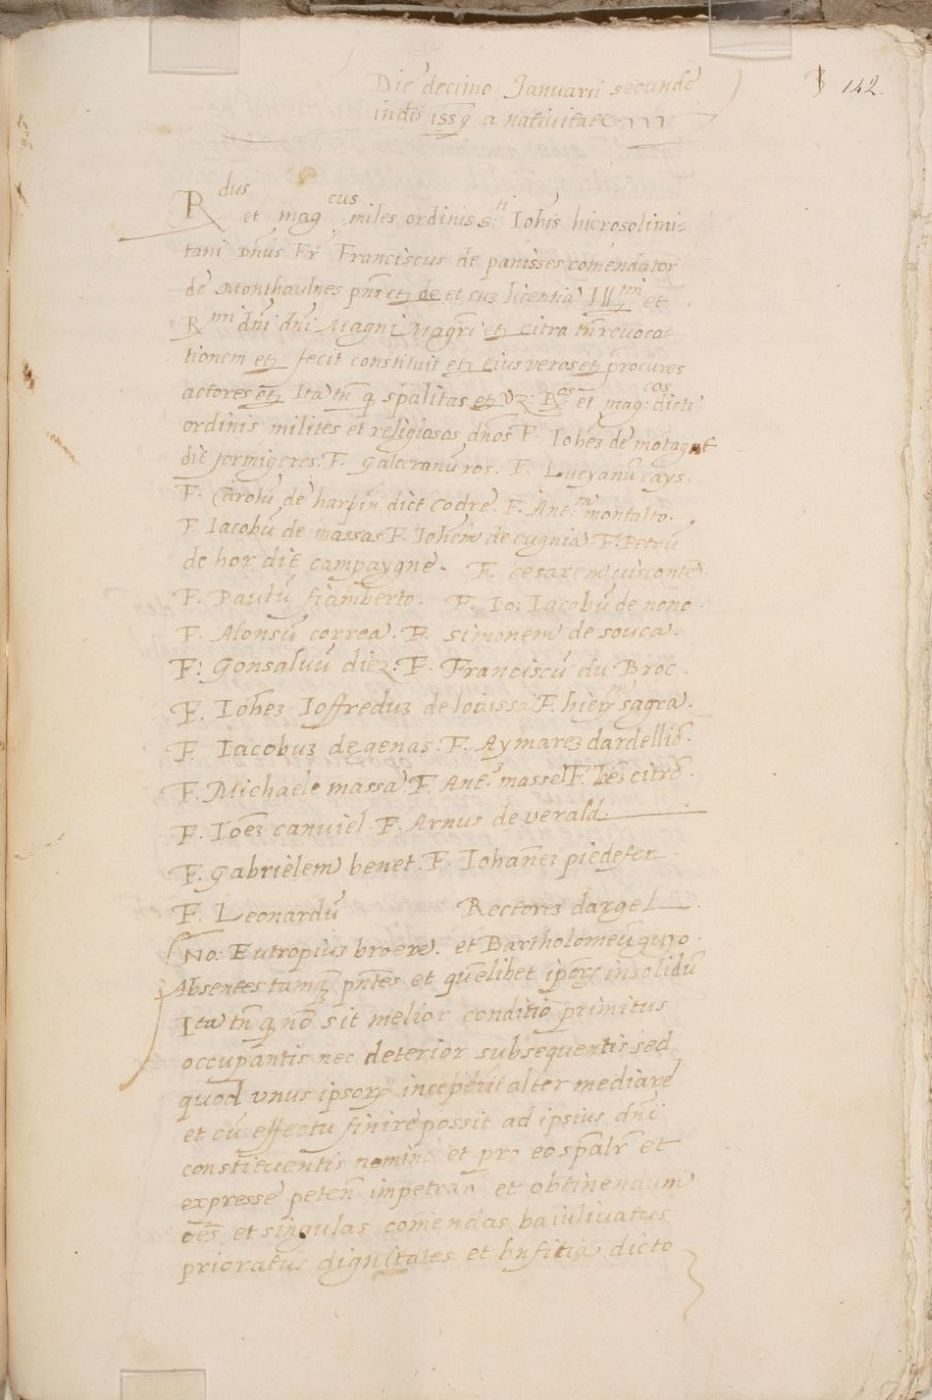 142.
Die decimo Januarii secunde
indis 1559 a nativitate
Rdus et magcus miles ordinis sti Iohis hierosolimi-
tani dnus Fr Franciscus de panisses comendator
de Monthaulnes pns etz de et cuz licentia Illmi et
Rmi dni dni Magni Magri etz citra tn revoca-
tionem etz fecit constituit etz eius veros etz procures
actores etz Ita tn q spalitas etz vz: Rdos et mag:cos dicti
ordinis milites et religiosos dnos F. Iohez de motagut
dit formigeres. F. Galceranu ros. F. Lucyanu cays.
F. Carolu de harpin dict codre. F. Ant.m montalto.
F. Iacobu de massas F. Iohem de cugnia F. Petru
de hor dit campaygne. F. cesarem visconte.
F. Paulu fiamberto. F. Io: Iacobu de nono.
F. Alonsu correa. F. simonem de souca.
F: Gonsalvu diez: F. Franciscu du Broc.
F. Iohez Ioffreduz de loaissa F. hierm sagra.
F. Iacobuz de genas: F. Aymarez dardellio.
F. Michaele massa F. Ant.m massel F. Ioes citro.
F. Ioez canviel. F. Arnus de verald.
F. Gabrielem benet. F. Iohanez piedefer
F. Leonardu Rectores dargel
No: Eutropiuz broere. et Bartholomeu quyo.
Absentes tamqz pntes et quelibet ipsorz insolidu
Ita tn q no sit melior conditio primitus
occupantis nec deterior subsequentis sed
quod unus ipsorz inceperit alter mediare
et cu effectu finire possit ad ipsius dni
constituentis nomine et pro eo spalr et
expresse peten impetran et obtinendum
oes et singulas comendas baiulivatus
prioratus dignitates et bnfitia dicto